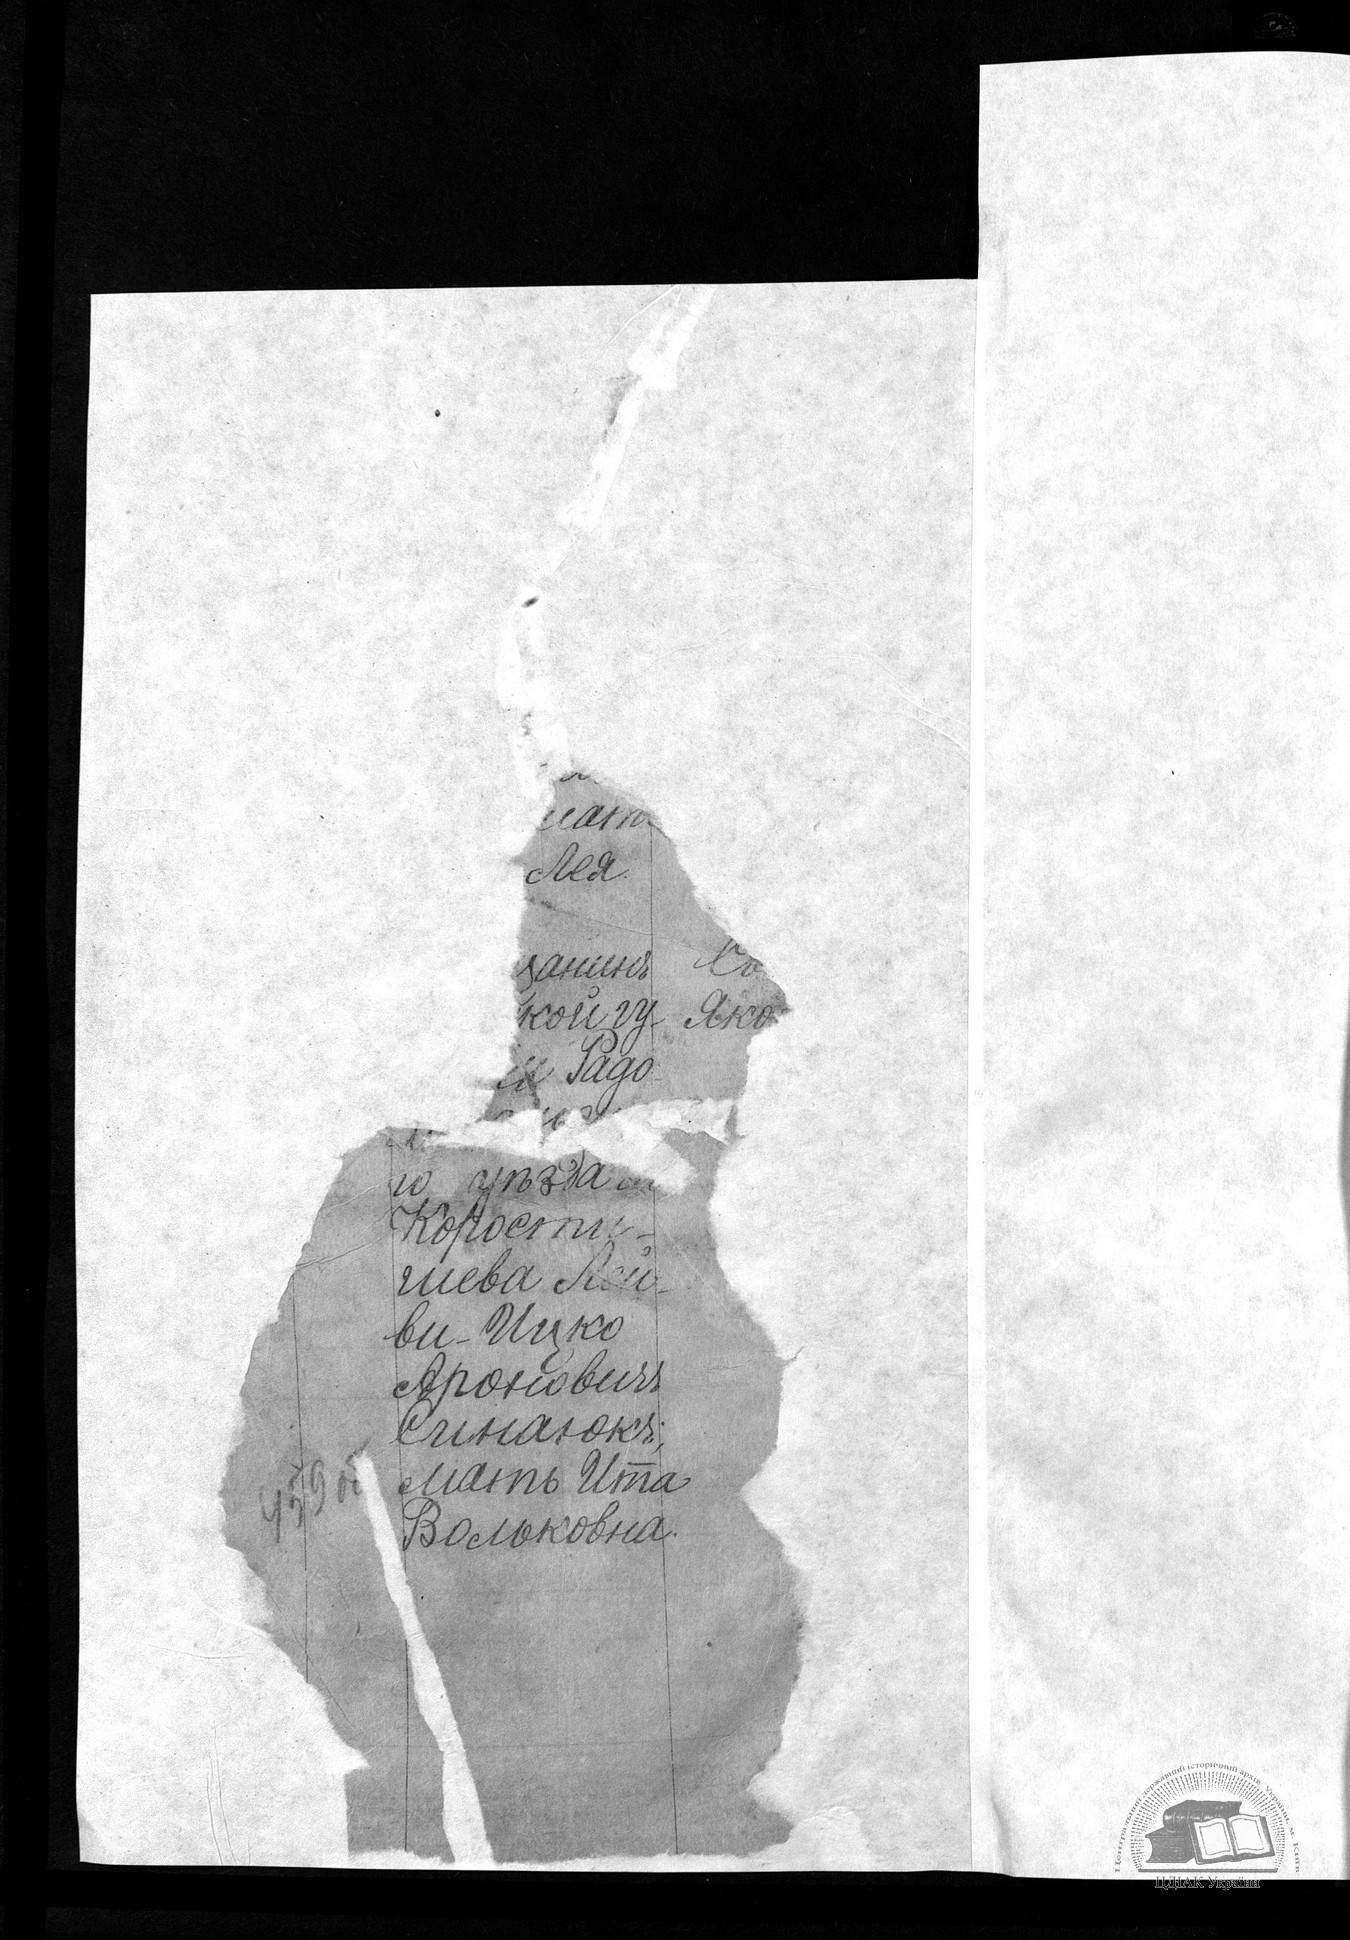 Лея.
анинъ
кой гу Яко
Радо
го уѣзда
Корости-
шева Лей-
ви-Ицко
Ароновичъ
Синаюкъ;
мать Ита
Вольковна.
459 об
Центральний державний історичний архів України, м. Київ
ЦДІАК України